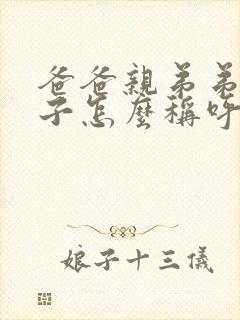 爸爸親弟弟
子怎麼稱呼
娘子十三儀